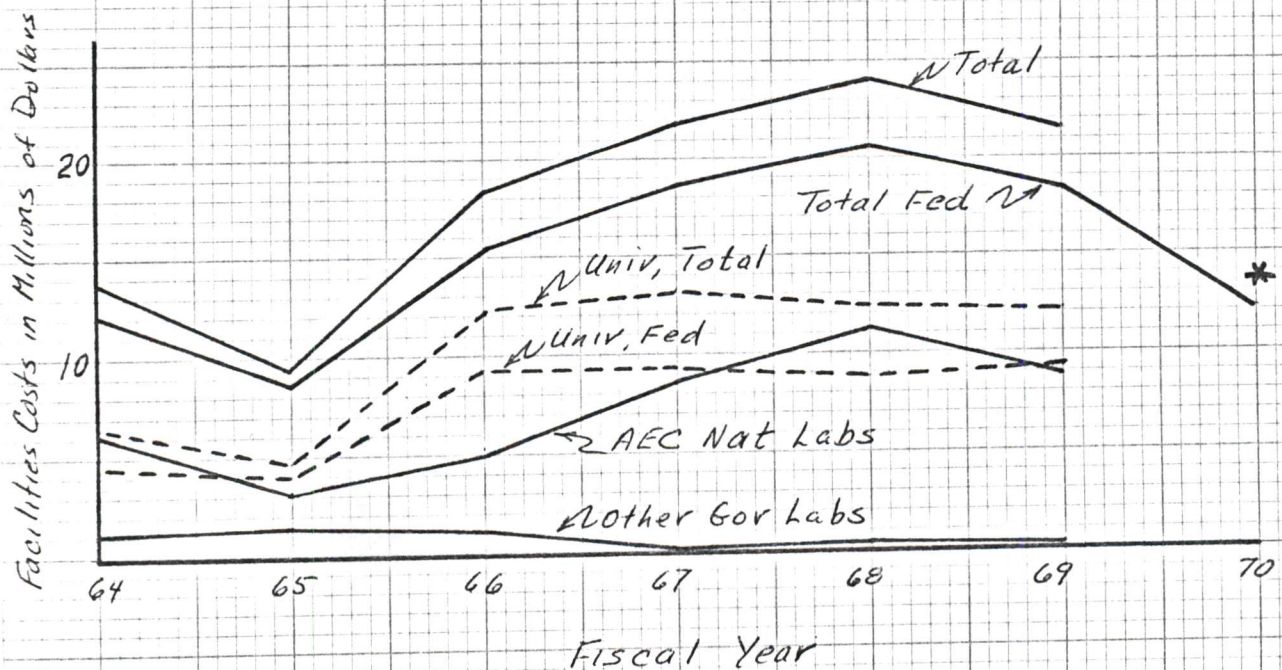 Facilities Costs in Millions of Dollars
Total
20
Total Fed
Univ, Total
*
10
Univ, Fed
AEC Nat Labs
Other Gov Labs
64 65 66 67 68 69 70
Fiscal Year